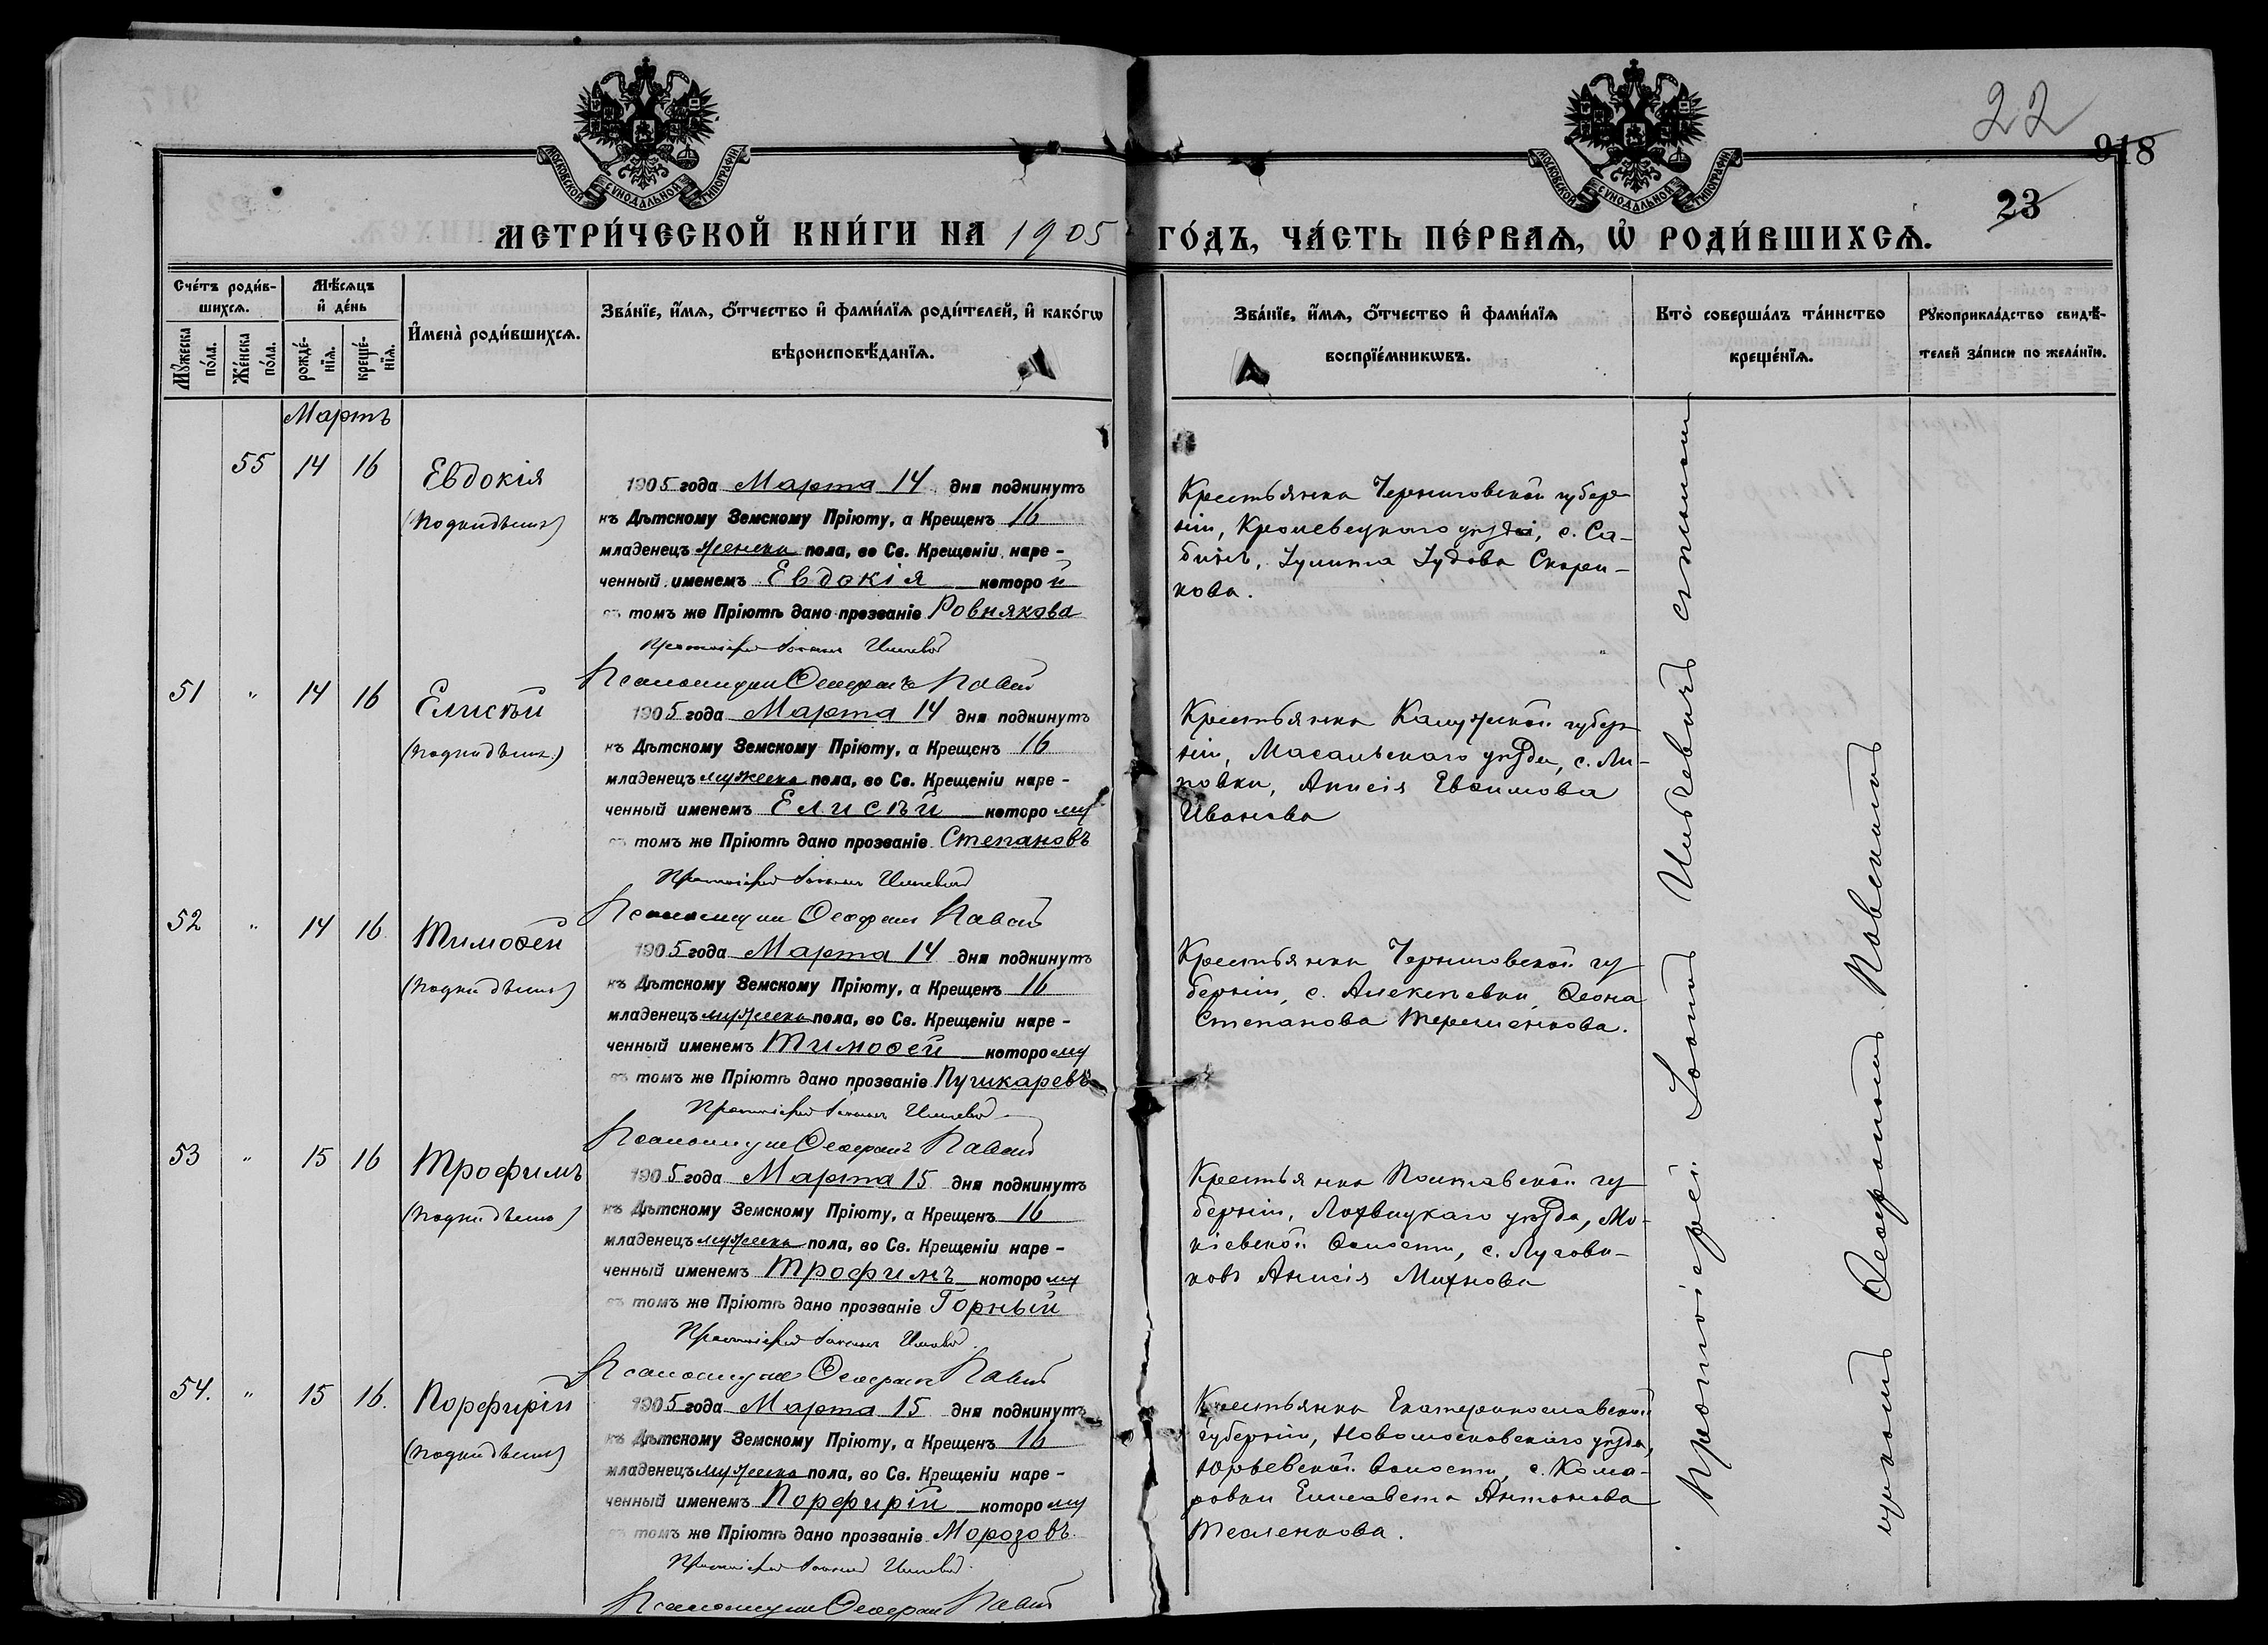 МОСКОВСКОЙ СѴНОДАЛЬНОЙ ТИПОГРАФІИ
МОСКОВСКОЙ СѴНОДАЛЬНОЙ ТИПОГРАФІИ
22
918
23
МЕТРИ́ЧЕСКОЙ КНИ́ГИ НА 1905 ГО́ДЪ, ЧА́СТЬ ПЕ́РВАѦ, Ѡ҆ РОДИ́ВШИХСѦ.
Сче́тъ роди́в-
шихсѧ.
Мꙋ́жеска по́ла.
Же́нска по́ла.
Мѣ́сѧцъ
и҆ де́нь
рожде́-
нїѧ.
креще́-
нїѧ.
И҆мена̀ роди́вшихсѧ.
Зва́нїе, и҆́мѧ, ѻ҆́тчество и҆ фами́лїѧ роди́телей, и҆ како́гѡ
вѣроисповѣ́данїѧ.
Зва́нїе, и҆́мѧ, ѻ҆́тчество и҆ фами́лїѧ
воспрїе́мникѡвъ.
Кто̀ соверша́лъ та́инство
креще́нїѧ.
Рꙋкоприкла́дство свидѣ́-
телей за́писи по жела́нїю.
Мартъ
55 14 16 Евдокія
(подкидышъ)
1905 года Марта 14 дня подкинутъ
къ Дѣтскому Земскому Пріюту, а Крещенъ 16
младенецъ женска пола, во Св. Крещеніи наре-
ченный именемъ Евдокія которой
въ томъ же Пріютѣ дано прозваніе Ровнякова
Протоіерей Іоаннъ Ильевич
Псаломщикъ Ѳеофанъ Павск
Крестьянка Черниговской губер-
ніи, Кролевецкаго уѣзда, с. Са-
Іулита Іудова
кова.
51 " 14 16 Елисѣй
(подкидышъ.)
1905 года Марта 14 дня подкинутъ
къ Дѣтскому Земскому Пріюту, а Крещенъ 16
младенецъ мужеска пола, во Св. Крещеніи наре-
ченный именемъ Елисѣй которому
въ томъ же Пріютѣ дано прозваніе Степановъ
Протоіерей Іоаннъ Ильевич
Псаломщикъ Ѳеофанъ Павск
Крестьянка Калужской губер-
ніи, Масальскаго уѣзда, с. Ли-
повки, Анисія Евѳимова
Иванова
52 " 14 16 Тимоѳей
(подкидышъ)
1905 года Марта 14 дня подкинутъ
къ Дѣтскому Земскому Пріюту, а Крещенъ 16
младенецъ мужеска пола, во Св. Крещеніи наре-
ченный именемъ Тимоѳей которому
въ томъ же Пріютѣ дано прозваніе Пушкаревъ
Протоіерей Іоаннъ Ильевич
Псаломщикъ Ѳеофанъ Павск
Крестьянка Черниговской гу-
берніи, с. Алексѣевки, Ѳеона
Степанова Терешенкова.
53 " 15 16 Трофимъ
(подкидышъ)
1905 года Марта 15 дня подкинутъ
къ Дѣтскому Земскому Пріюту, а Крещенъ 16
младенецъ мужеска пола, во Св. Крещеніи наре-
ченный именемъ Трофимъ которому
въ томъ же Пріютѣ дано прозваніе Горный
Протоіерей Іоаннъ Ильевич
Псаломщикъ Ѳеофанъ Павск
Крестьянка Полтавской гу-
берніи, Лохвицкаго уѣзда, Мо-
кіевской волости, с. Лугови-
ковъ Анисія Михнова
54. " 15 16. Порфирій
(подкидышъ)
1905 года Марта 15 дня подкинутъ
къ Дѣтскому Земскому Пріюту, а Крещенъ 16
младенецъ мужеска пола, во Св. Крещеніи наре-
ченный именемъ Порфирій которому
въ томъ же Пріютѣ дано прозваніе Морозовъ
Протоіерей Іоаннъ Ильевич
Псаломщикъ Ѳеофанъ Павск
Крестьянка Екатеринославской
губерніи, Новомосковскаго уѣзда,
Юрьевской волости, с. Кома-
ровки Елисавета Антонова
Тесленкова.
Протоіерей Іоаннъ Ильевичъ съ псалом-
щикомъ Ѳеофаномъ Павскимъ